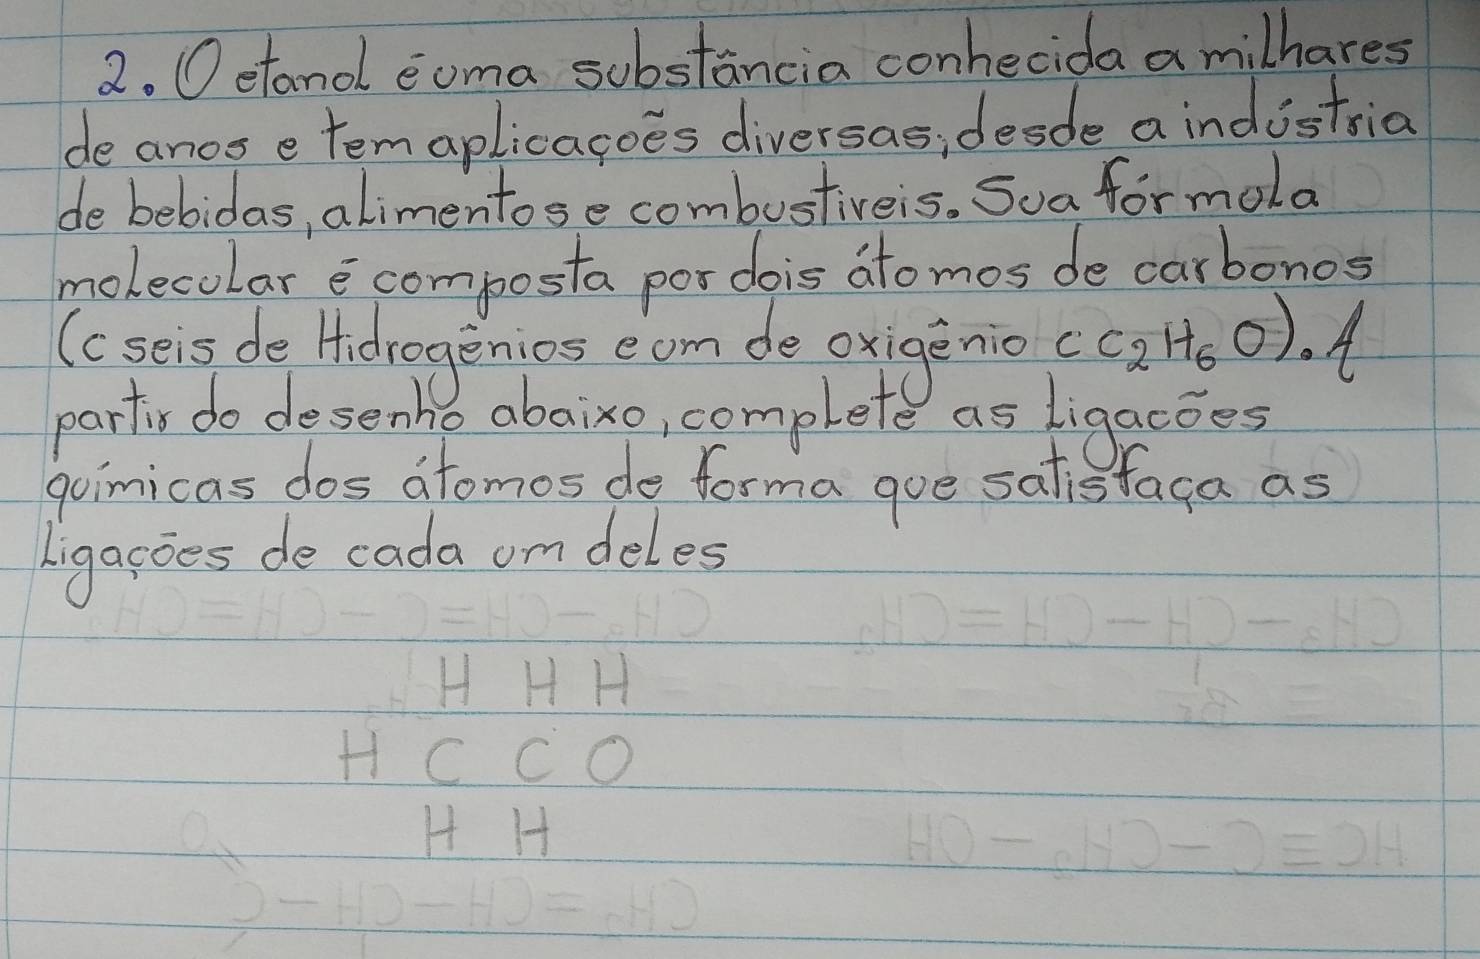 2. O etanol é uma substância conhecida a milhares
de anos e tem aplicações diversas, desde a indústria
de bebidas, alimentos e combustiveis. Sua fórmula
molecular é composta por dois átomos de carbonos
(c seis de Hidrogênios e um de oxigênio c C₂H₆O). A
partir do desenho abaixo, complete as ligacões
químicas dos átomos de forma que satisfaça as
ligações de cada um deles
H H H
H C C O
H H